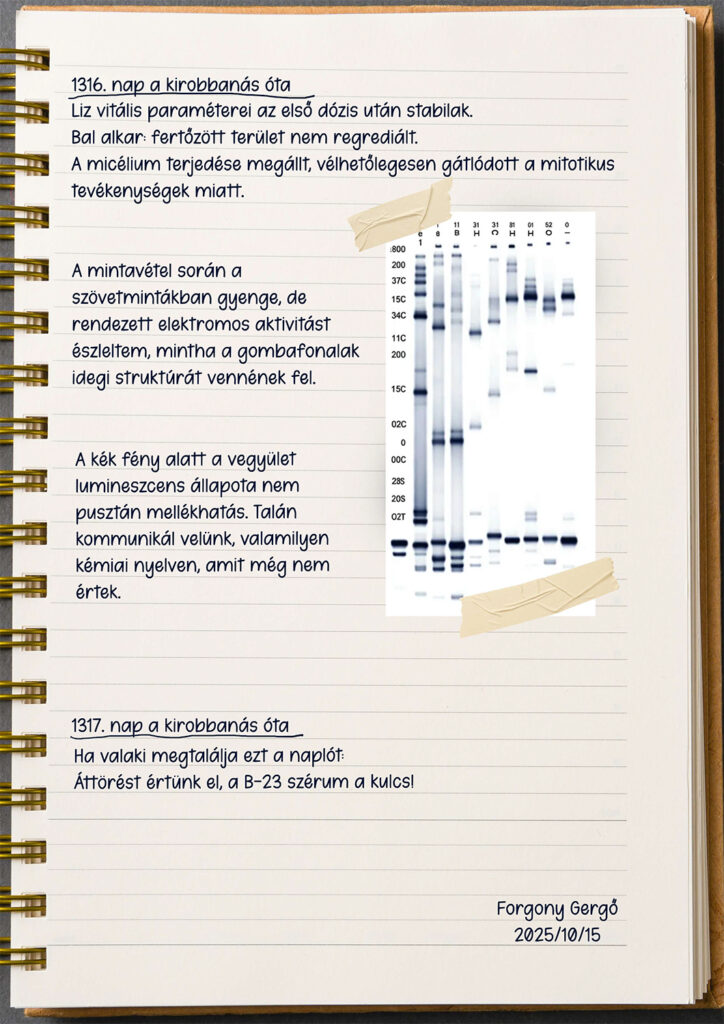 1316. nap a kirobbanás óta
Liz vitális paraméterei az első dózis után stabilak.
Bal alkar: fertőzött terület nem regrediált.
A micélium terjedése megállt, vélhetőlegesen gátlódott a mitotikus
tevékenységek miatt.
A mintavétel során a
szövetmintákban gyenge, de
rendezett elektromos aktivitást
észleltem, mintha a gombafonalak
idegi struktúrát vennének fel.
A kék fény alatt a vegyület
lumineszcens állapota nem
pusztán mellékhatás. Talán
kommunikál velünk, valamilyen
kémiai nyelven, amit még nem
értek.
11B
31H
31C
81H
01H
52O
0
1800
200
37C
15C
34C
11C
200
15C
02C
0
00C
28S
20S
02T
1317. nap a kirobbanás óta
Ha valaki megtalálja ezt a naplót:
Áttörést értünk el, a B-23 szérum a kulcs!
Forgony Gergő
2025/10/15